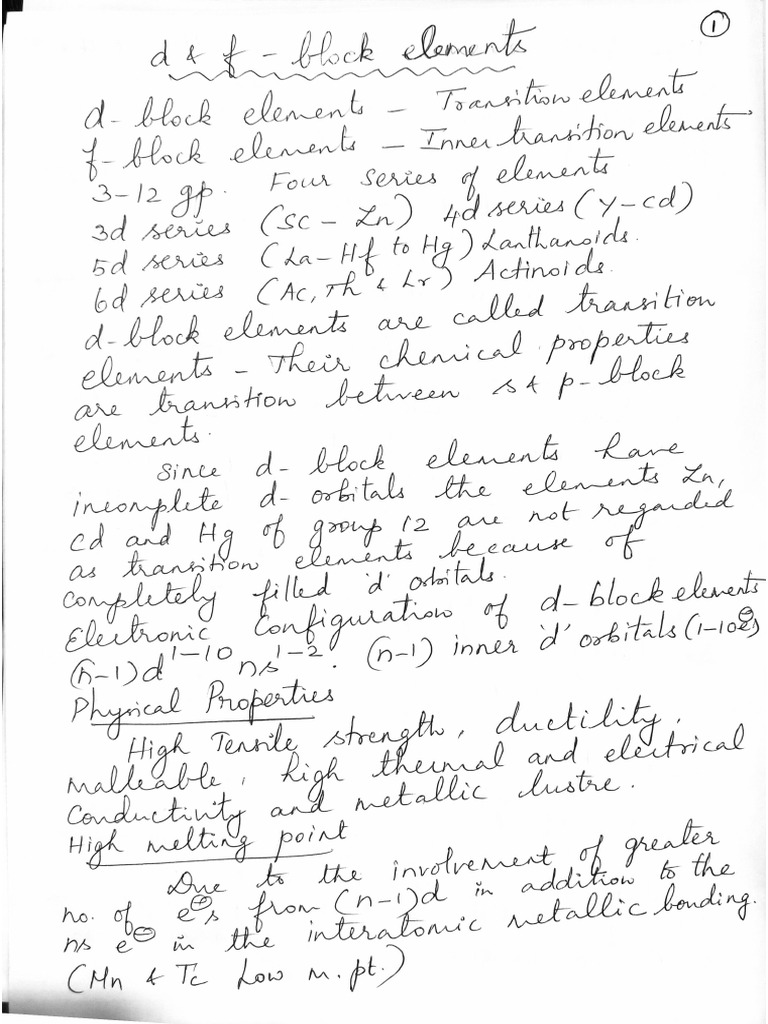 1
d & f - block elements
d-block elements – Transition elements
f-block elements – Inner transition elements.
3-12 gp. Four series of elements
3d series (Sc – Zn) 4d series (Y-Cd)
5d series (La – Hf to Hg) Lanthanoids.
6d series (Ac, Th & Lr) Actinoids.
d-block elements are called transition
elements – Their chemical properties
are transition between s & p-block
elements.
Since d- block elements have
incomplete d- orbitals the elements Zn,
Cd and Hg of group 12 are not regarded
as transition elements because of
completely filled 'd' orbitals.
Electronic Configuration of d-block elements
(n-1)d¹⁻¹⁰ ns¹⁻². (n-1) inner 'd' orbitals (1-10e⊖s)
Physical Properties
High Tensile strength, ductility,
malleable, high thermal and electrical
Conductivity and metallic lustre.
High melting point
Due to the involvement of greater
no. of e⊖s from (n-1)d in addition to the
ns e⊖ in the interatomic metallic bonding.
(Mn & Tc Low m. pt.)